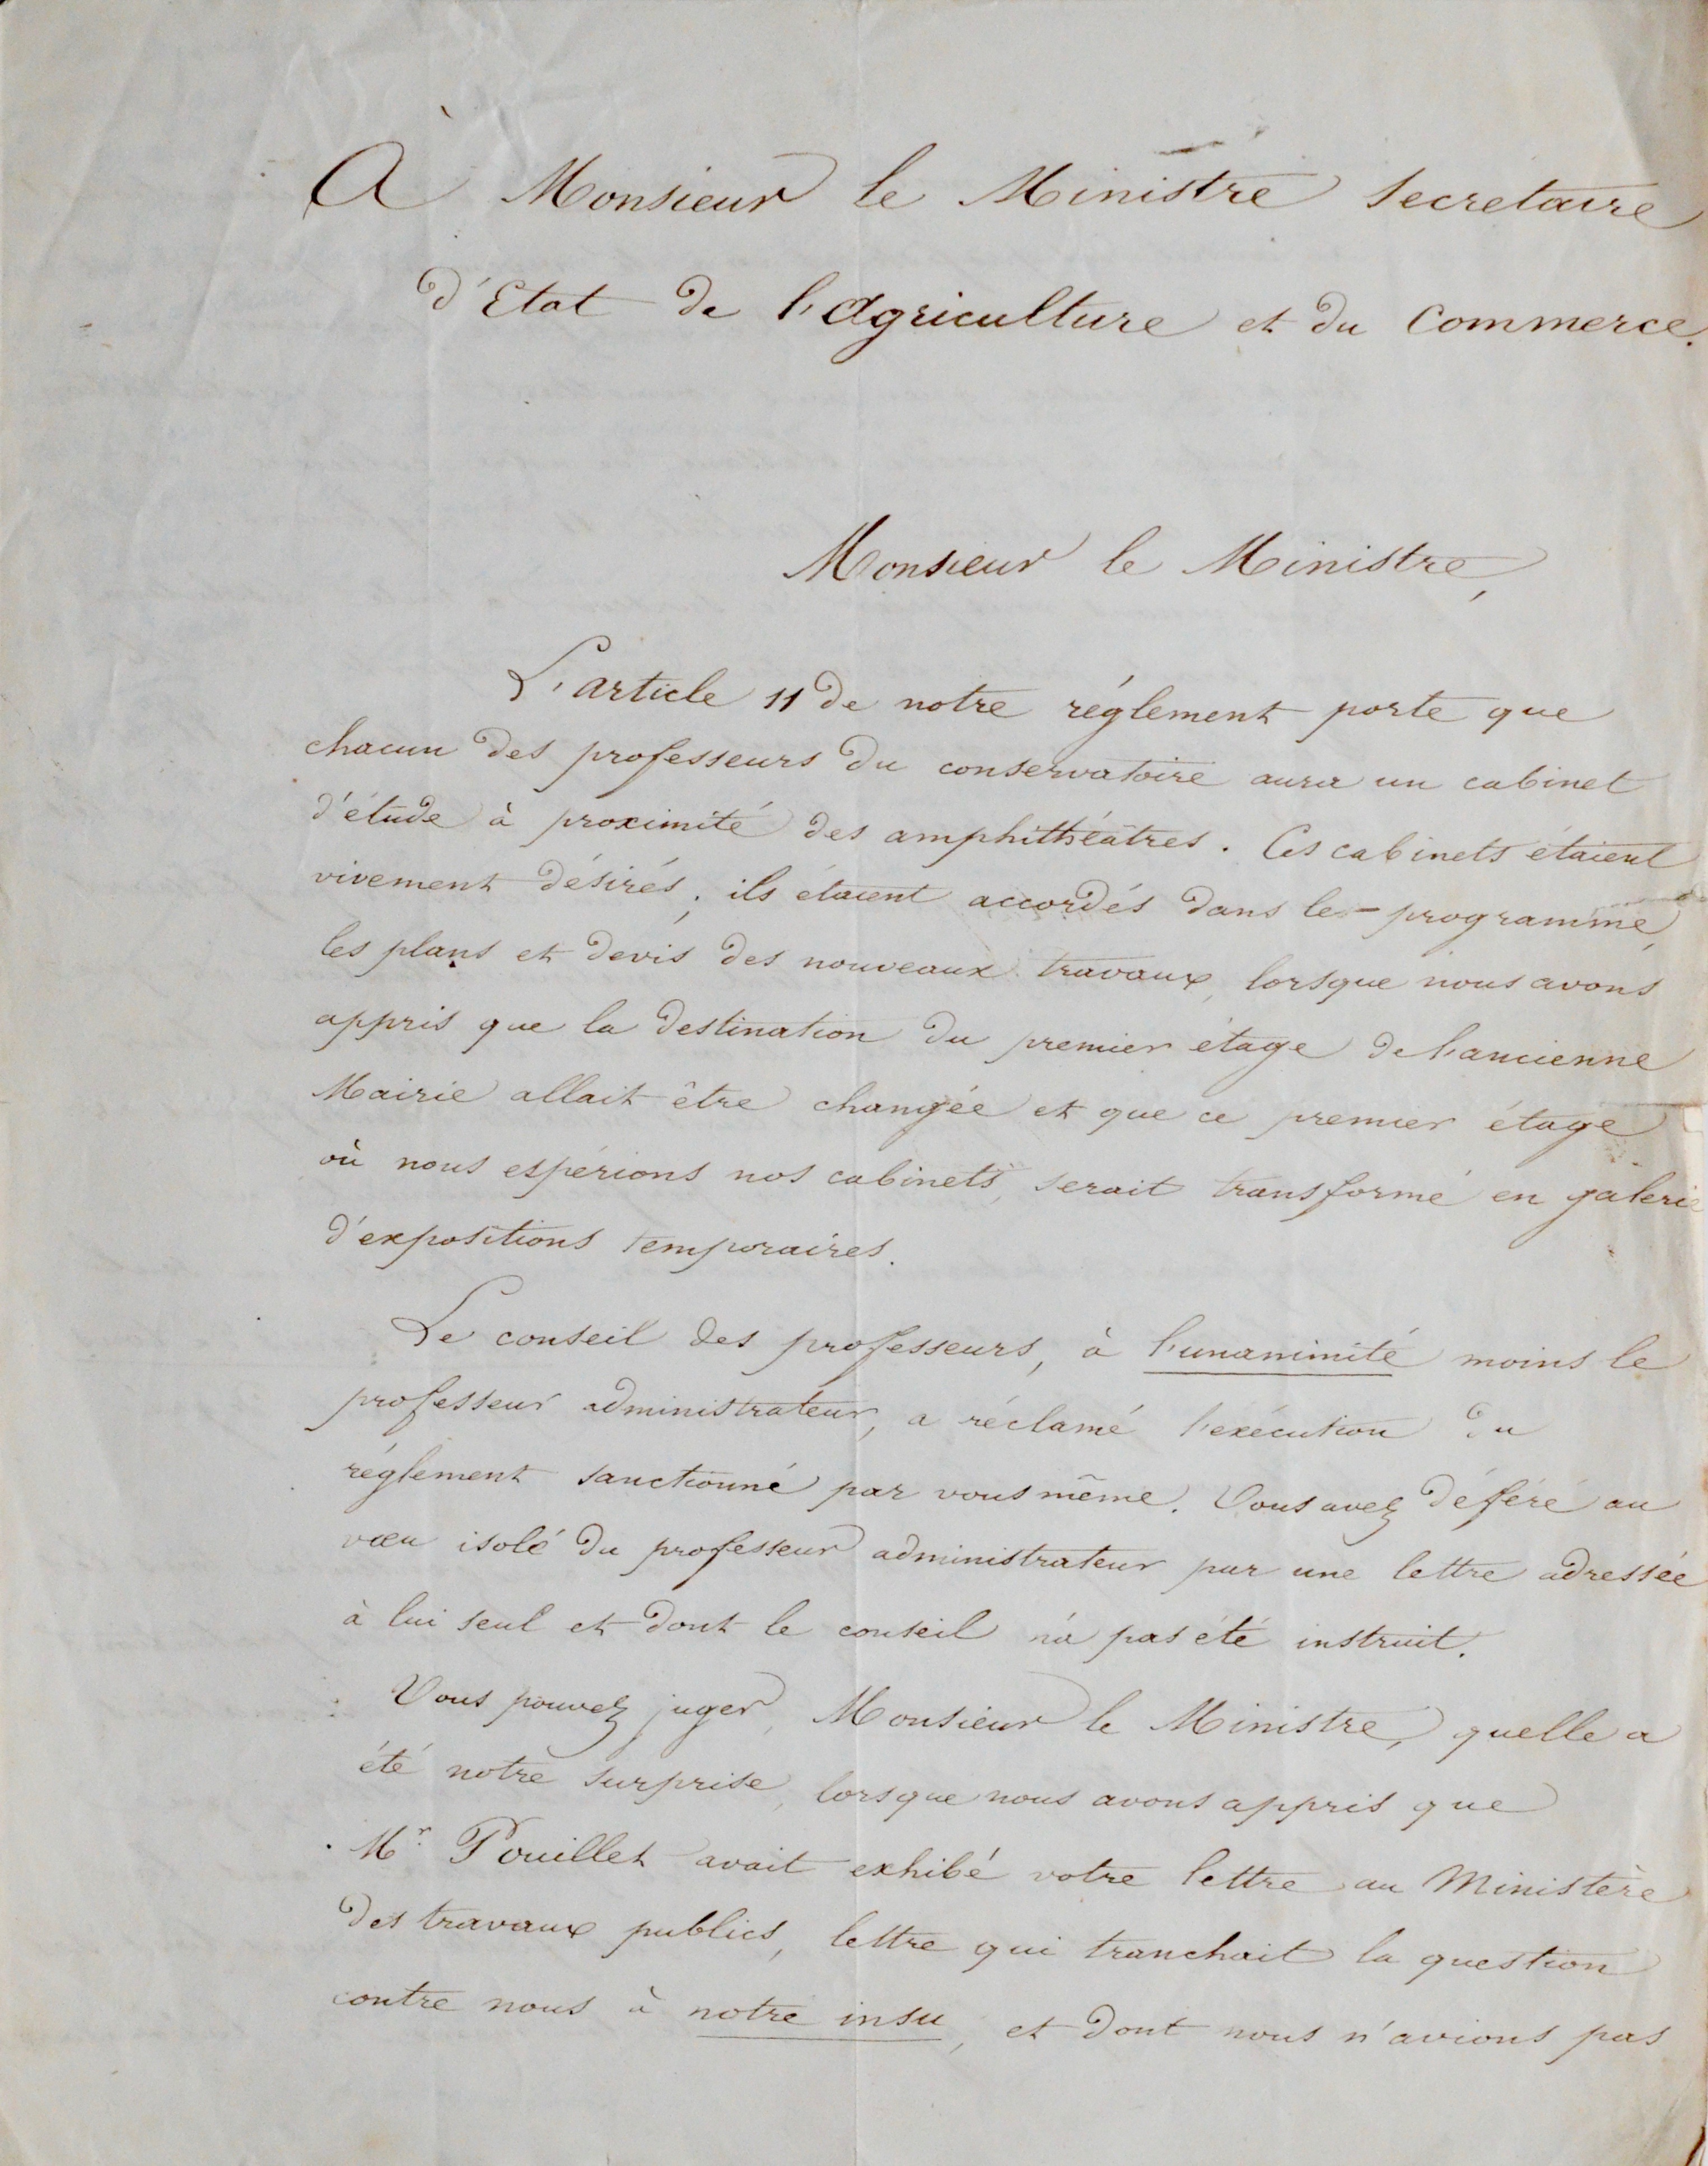 À Monsieur le Ministre Secretaire
d'Etat de l'Agriculture et du Commerce.
Monsieur le Ministre,
L'article 11 de notre réglement porte que
chacun des professeurs du conservatoire aura un cabinet
d'étude à proximité des amphithéâtres. Ces cabinets étaient
vivement désirés; ils étaient accordés dans le programme,
les plans et devis des nouveaux travaux, lorsque nous avons
appris que la destination du premier étage de l'ancienne
Mairie allait être changée et que ce premier étage
où nous espérions nos cabinets, serait transformé en galerie
d'expositions temporaires.
Le conseil des professeurs, à l'unanimité moins le
professeur administrateur, a réclamé l'exécution du
réglement sanctionné par vous même. Vous avez déféré au
vœu isolé du professeur administrateur par une lettre adressée
à lui seul et dont le conseil n'a pas été instruit.
Vous pouvez juger, Monsieur le Ministre, quelle a
été notre surprise, lorsque nous avons appris que
Mr. Pouillet avait exhibé votre lettre au Ministère
des travaux publics, lettre qui tranchait la question
contre nous à notre insu, et dont nous n'avions pas